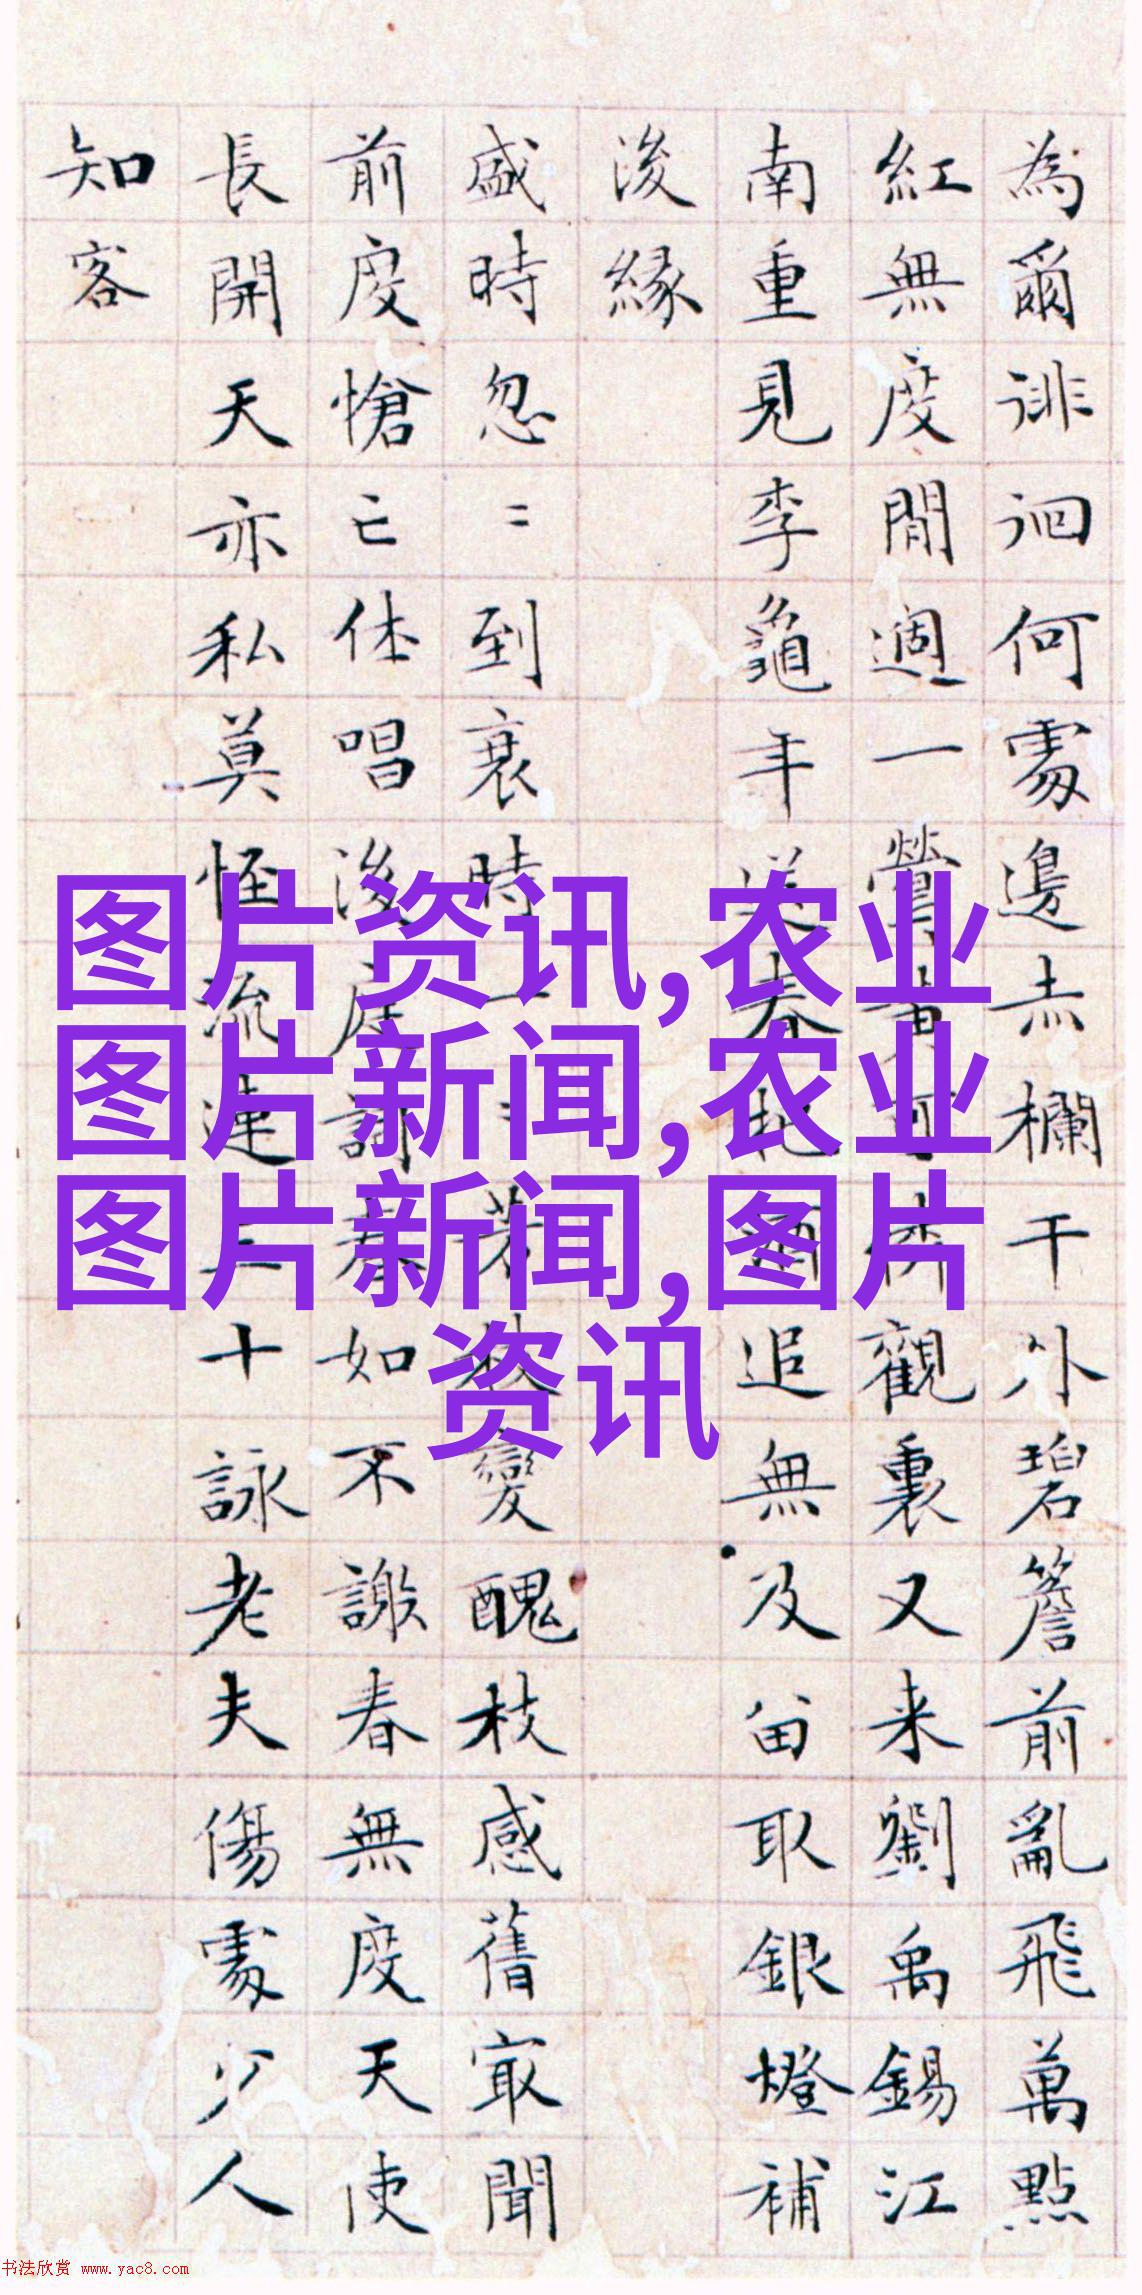 為爾徘徊何處邊赤欄干外碧簷前亂飛萬點
紅無度閒週一鶯觀裏又来劉禹錫江
南重見李龜年送春把酒追無及留取銀燈補
後緣
盛時忽〻到衰時一〻芳枝變醜枝感舊最聞
前度愴亡休唱後庭詞春如不謝春無度天使
長開天亦私莫怪流連三十詠老夫傷處少人
知客
图片资讯,农业
图片新闻,农业
图片新闻,图片
资讯
书法欣赏 www.yac8.com